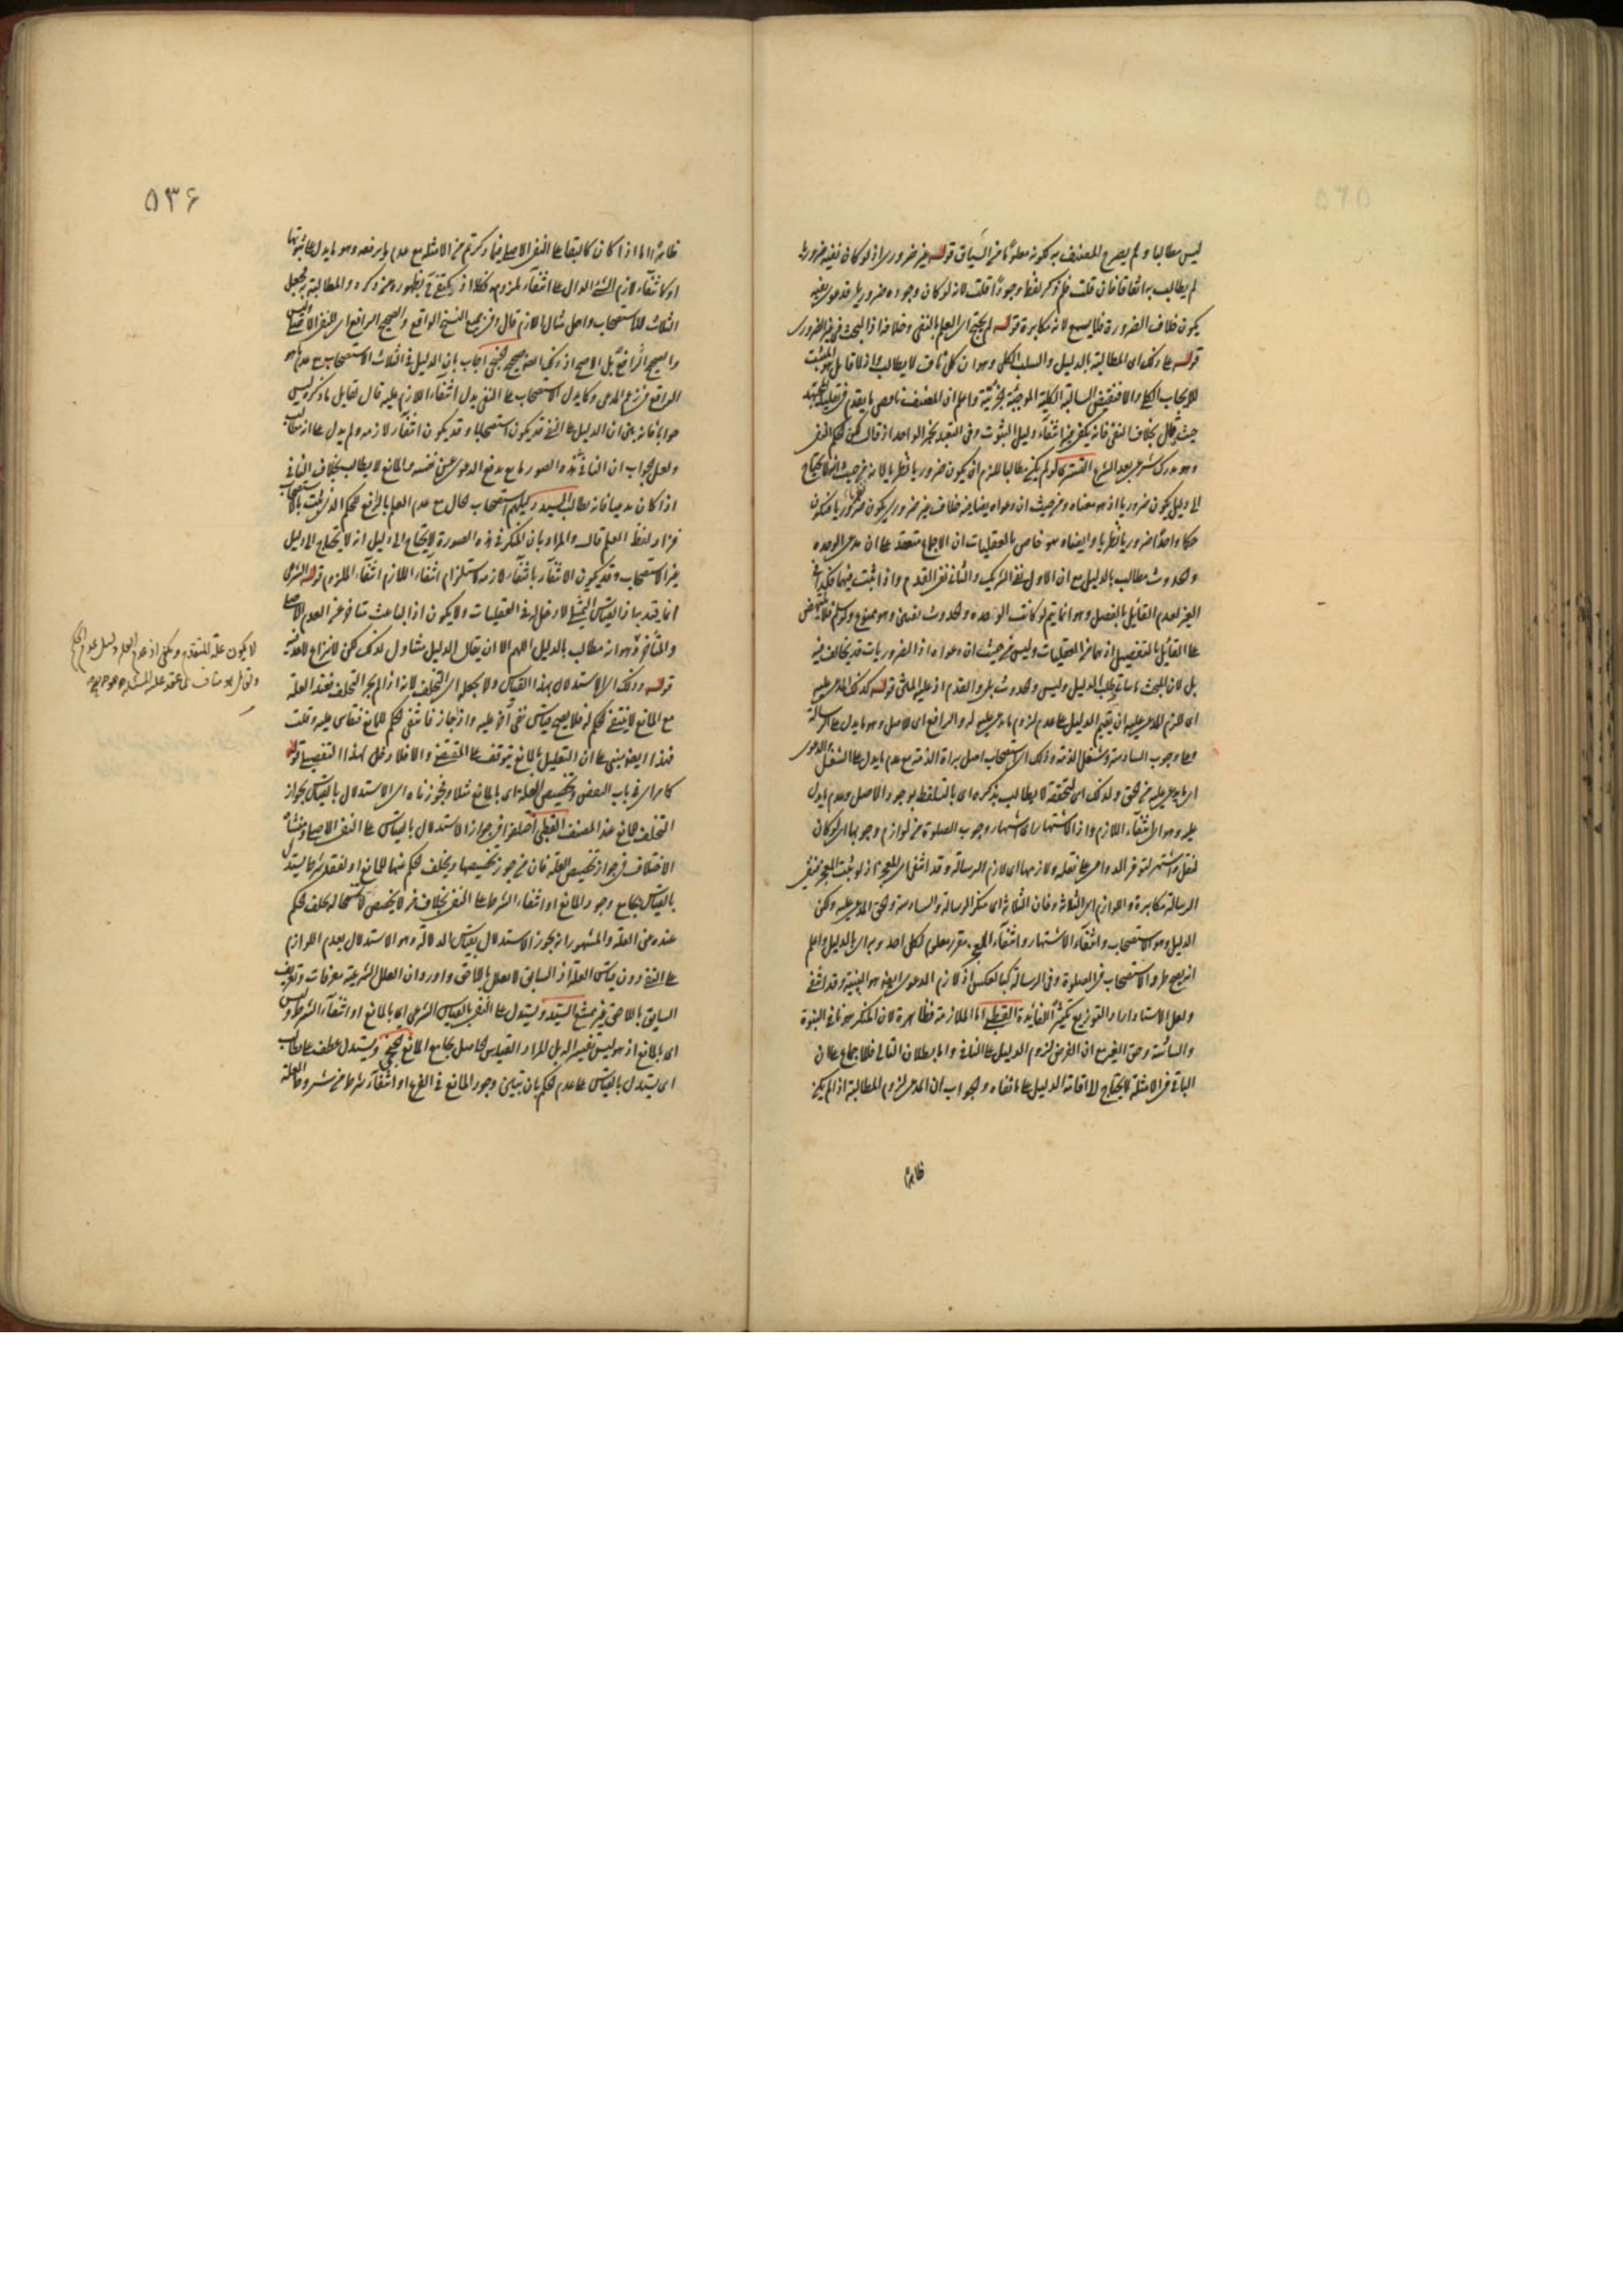 ليس مطالبا ولم يصرح المصنف به لكونه معلوما من السياق قوله غير ضروري اذ لو كان نفيه ضروريا
لم يطالب به اتفاقا فان قلت فلم ذكر لفظ وجودا قلت لانه لو كان وجوده ضروريا فدعوى نفيه
يكون خلاف الضرورة فلا يسمع لانه مكابرة قوله لم يحتج اى العلم بالنفى وخلافه اذ البحث فى غير الضرورى
قوله على ذلك اى المطالبة بالدليل والسلب الكلى وهو ان كل ناف لا يطالب
للايجاب الكلى والا فنقيض السالبة الكلية الموجبة الجزئية واعلم ان المصنف ناقض ما تقدم
حيث قال بخلاف النفى فانه يكفى فيه انتفاء دليل الثبوت وفى التعبد بخبر الواحد اذ قال لكن الحكم النفى
وهو مدرك شرعى بعد الشرع التسترى لو لم يكن مطالبا للزم ان يكون ضروريا نظريا لانه من حيث انه لا يحتاج
الى دليل يكون ضروريا اذ هو معناه ومن حيث ان دعواه ايضا فيه خلاف غير ضرورى يكون
حكما واحدا ضروريا نظريا وايضا هو خاص بالعقليات ان الاجماع منعقد على ان مدعى الوحدة
والحدوث مطالب بالدليل مع ان الاول نفى الشريك والثانى نفى القدم واذا ثبت فيهما فكذا فى
الغير لعدم القائل بالفصل وهو انما يتم لو كانت الوحدة والحدوث نفيين وهو ممنوع ولو سلم
على القائل بالتفصيل اذ هما من العقليات وليس من حيث ان دعواه اذ الضروريات قد يخالف فيه
بل لان المبحث ما يطلب الدليل وليس والحدوث بل والقدم اذ عليه المبنى قوله كذلك المدعى عليه
اى للزم المدعى عليه ان يقيم الدليل على عدم لزوم ما يدعى عليه له والرافع اى الاصل وهو ما يدل على الرسالة
وعلى وجوب السادسة وشغل الذمة وذلك الاستصحاب اصل براءة الذمة مع عدم ما يدل على الشغل
اى ما يدعى عليه من الحق ولذلك اى لتحققه لا يطالب بذكره اى بالتلفظ بوجود الاصل وعدم ما يدل
عليه وهو اى انتفاء اللازم واذ الاشتهار اى اشتهار وجوب الصلوة من لوازم وجوبها اى لو كان
لنقل واشتهر لتوفر الدواعى على نقله ولازمها اى لازم الرسالة وقد انتفى اى المعجزة اذ لو ثبت المعجز فنفى
الرسالة مكابرة واللوازم اى الثلاثة وفان الثلاثة اى منكر الرسالة والسادسة والحق المدعى عليه ولكن
الدليل وهو الاستصحاب وانتفاء الاشتهار وانتفاء المعجز مقرر معلوم لكل احد وبه اى بالدليل واعلم
انه يصح طرد الاستصحاب فى الصلوة وفى الرسالة كما بالعكس اذ لازم الدعوى ايضا هو البينة وقد انتفى
ولعل الاستاذ اراد التوزيع تكثيرا للفائدة القطبى اما الملازمة فظاهرة لان المنكر هو نافى النبوة
والسادسة وحق الغير مع ان الغرض لزوم الدليل على النافى واما بطلان التالى فللاجماع على ان
النافى فى الامثلة لا يحتاج لاقامة الدليل على ما نفاه والجواب ان المدعى لزوم المطالبة اذا لم يكن
ظاهرا
٥٣۶
ظاهرا واما اذا كان كالبقاء على النفى الاصلى فيما ذكرتم من الامثلة مع عدم ما يرفعه وهو ما يدل على ثبوتها
او كانتفاء لازم الشئ الدال على انتفاء ملزومه فكذا اذ يكتفى بظهوره عن ذكره والمطالبة به فجعل
الثلاث للاستصحاب واهمل مثال اللازم قال وفى جميع النسخ الواقع والصحيح الرافع اى للنفى الاصلى
والصحيح الرافع بل الاصح اذ ذلك ايضا صحيح الخنجى اجاب بان الدليل فى الثلاث الاستصحاب مع عدم
الرافع من زعم المدعى وكما يدل الاستصحاب على النفى يدل انتفاء اللازم عليه قال لقائل ما ذكر ليس
جوابا فانه بين ان الدليل على النفى قد يكون استصحابا وقد يكون انتفاء لازمه ولم يدل على انه مطالب
ولعل الجواب ان النافى فى هذه الصور مانع يدفع الدعوى عن نفسه والمانع لا يطالب بخلاف النافى
اذا كان مدعيا فانه يطالب السيد دليلهم استصحاب الحال مع عدم العلم بالرافع للحكم الذى ثبت بالاستصحاب
فزاد لفظ العلم قال والمراد بان المنكر فى هذه الصورة لا يحتاج الى دليل انه لا يحتاج الى دليل
غير الاستصحاب وقد يكون الانتفاء بانتفاء لازمه لاستلزام انتفاء اللازم انتفاء الملزوم قوله الشرعى
انما قيد به اذ القياس التمثيلى لا دخل له فى العقليات ولا يكون اذ الباعث متأخر عن العدم الاصلى
والمتأخر وهو انه مطالب بالدليل اللهم الا ان يقال الدليل متناول لذلك لكن لا نزاع لاحد فيه
قوله وذلك اى الاستدلال بهذا القياس ولا يجعل اى التخلف لانه اذا لم يجز التخلف فعند العلة
مع المانع لا ينتفى الحكم له فلا يصح قياس نفى آخر عليه واذا جاز فانتفى الحكم للمانع فيقاس عليه وقلت
فهذا ايضا مبنى على ان التعليل بالمانع يتوقف على المقتضى والا فلا دخل لهذا التفصيل قوله
كما مر اى فى باب النقض وتخصيص العلة اى بالمانع مثلا وبجوزناه اى الاستدلال بالقياس لجواز
التخلف للمانع عند المصنف القطبى اختلفوا فى جواز الاستدلال بالقياس على النفى الاصلى ومنشأ
الاختلاف فى جواز تخصيص العلة فان من جوز تخصيصها وتخلف الحكم عنها للمانع او لفقد شرط يستدل
بالقياس بجامع وجود المانع او انتفاء الشرط على النفى بخلاف من لا يخصص لاستحالة تخلف الحكم
عنده عن العلة والمشهور انه يجوز الاستدلال بقياس الدلالة وهو الاستدلال بعدم اللوازم
على النفى دون قياس العلة اذ السابق لا يعلل باللاحق واورد ان العلل الشرعية معرفات وتعريف
السابق باللاحق غير ممتنع السيد ويستدل على النفى بالقياس الشرعى اى بالمانع او انتفاء الشرط وليس
اى بالمانع اذ هو ليس تفسيرا له بل المراد القياس الحاصل بجامع المانع الخنجى ويستدل عطف على يطالب
اى يستدل بالقياس على عدم الحكم بان تبين وجود المانع فى الفرع او انتفاء شرط من شروط العلة
لا يكون علة للمتقدم